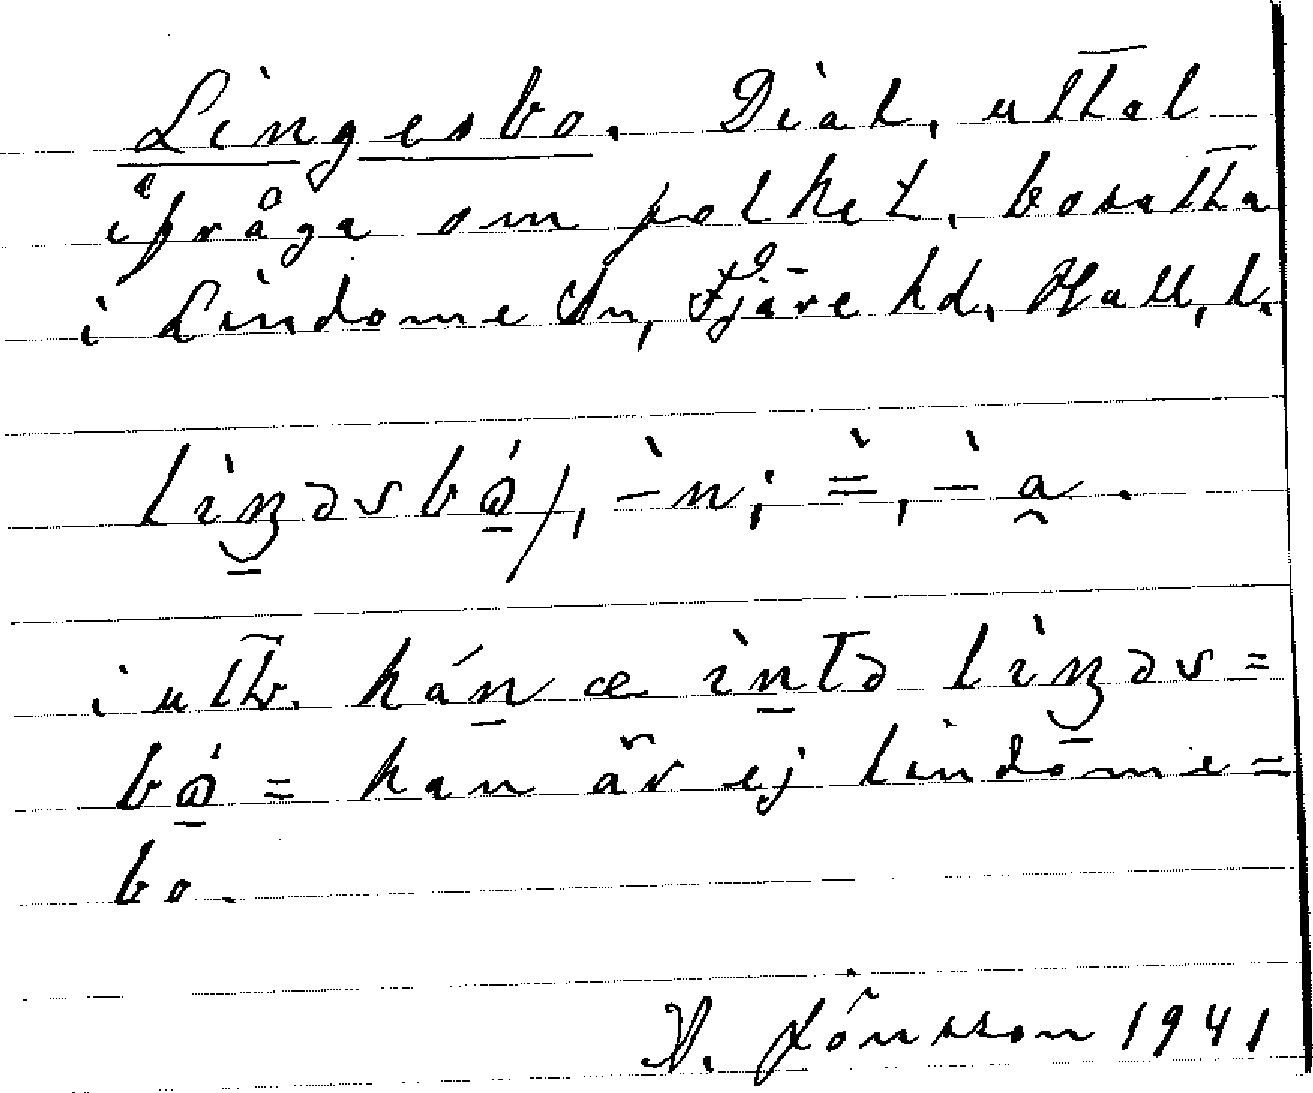 Lingesbo. Dial. uttal
ifråga om folket, bosatta
i Lindome sn, Fjäre hd. Hall, l.
lìŋəsbǻ/, -̀n; =̀, -̀a.
i uttr. hán æ ìntə lìŋəs=
bǻ = han är ej lindome=
bo.
Jönsson 1941